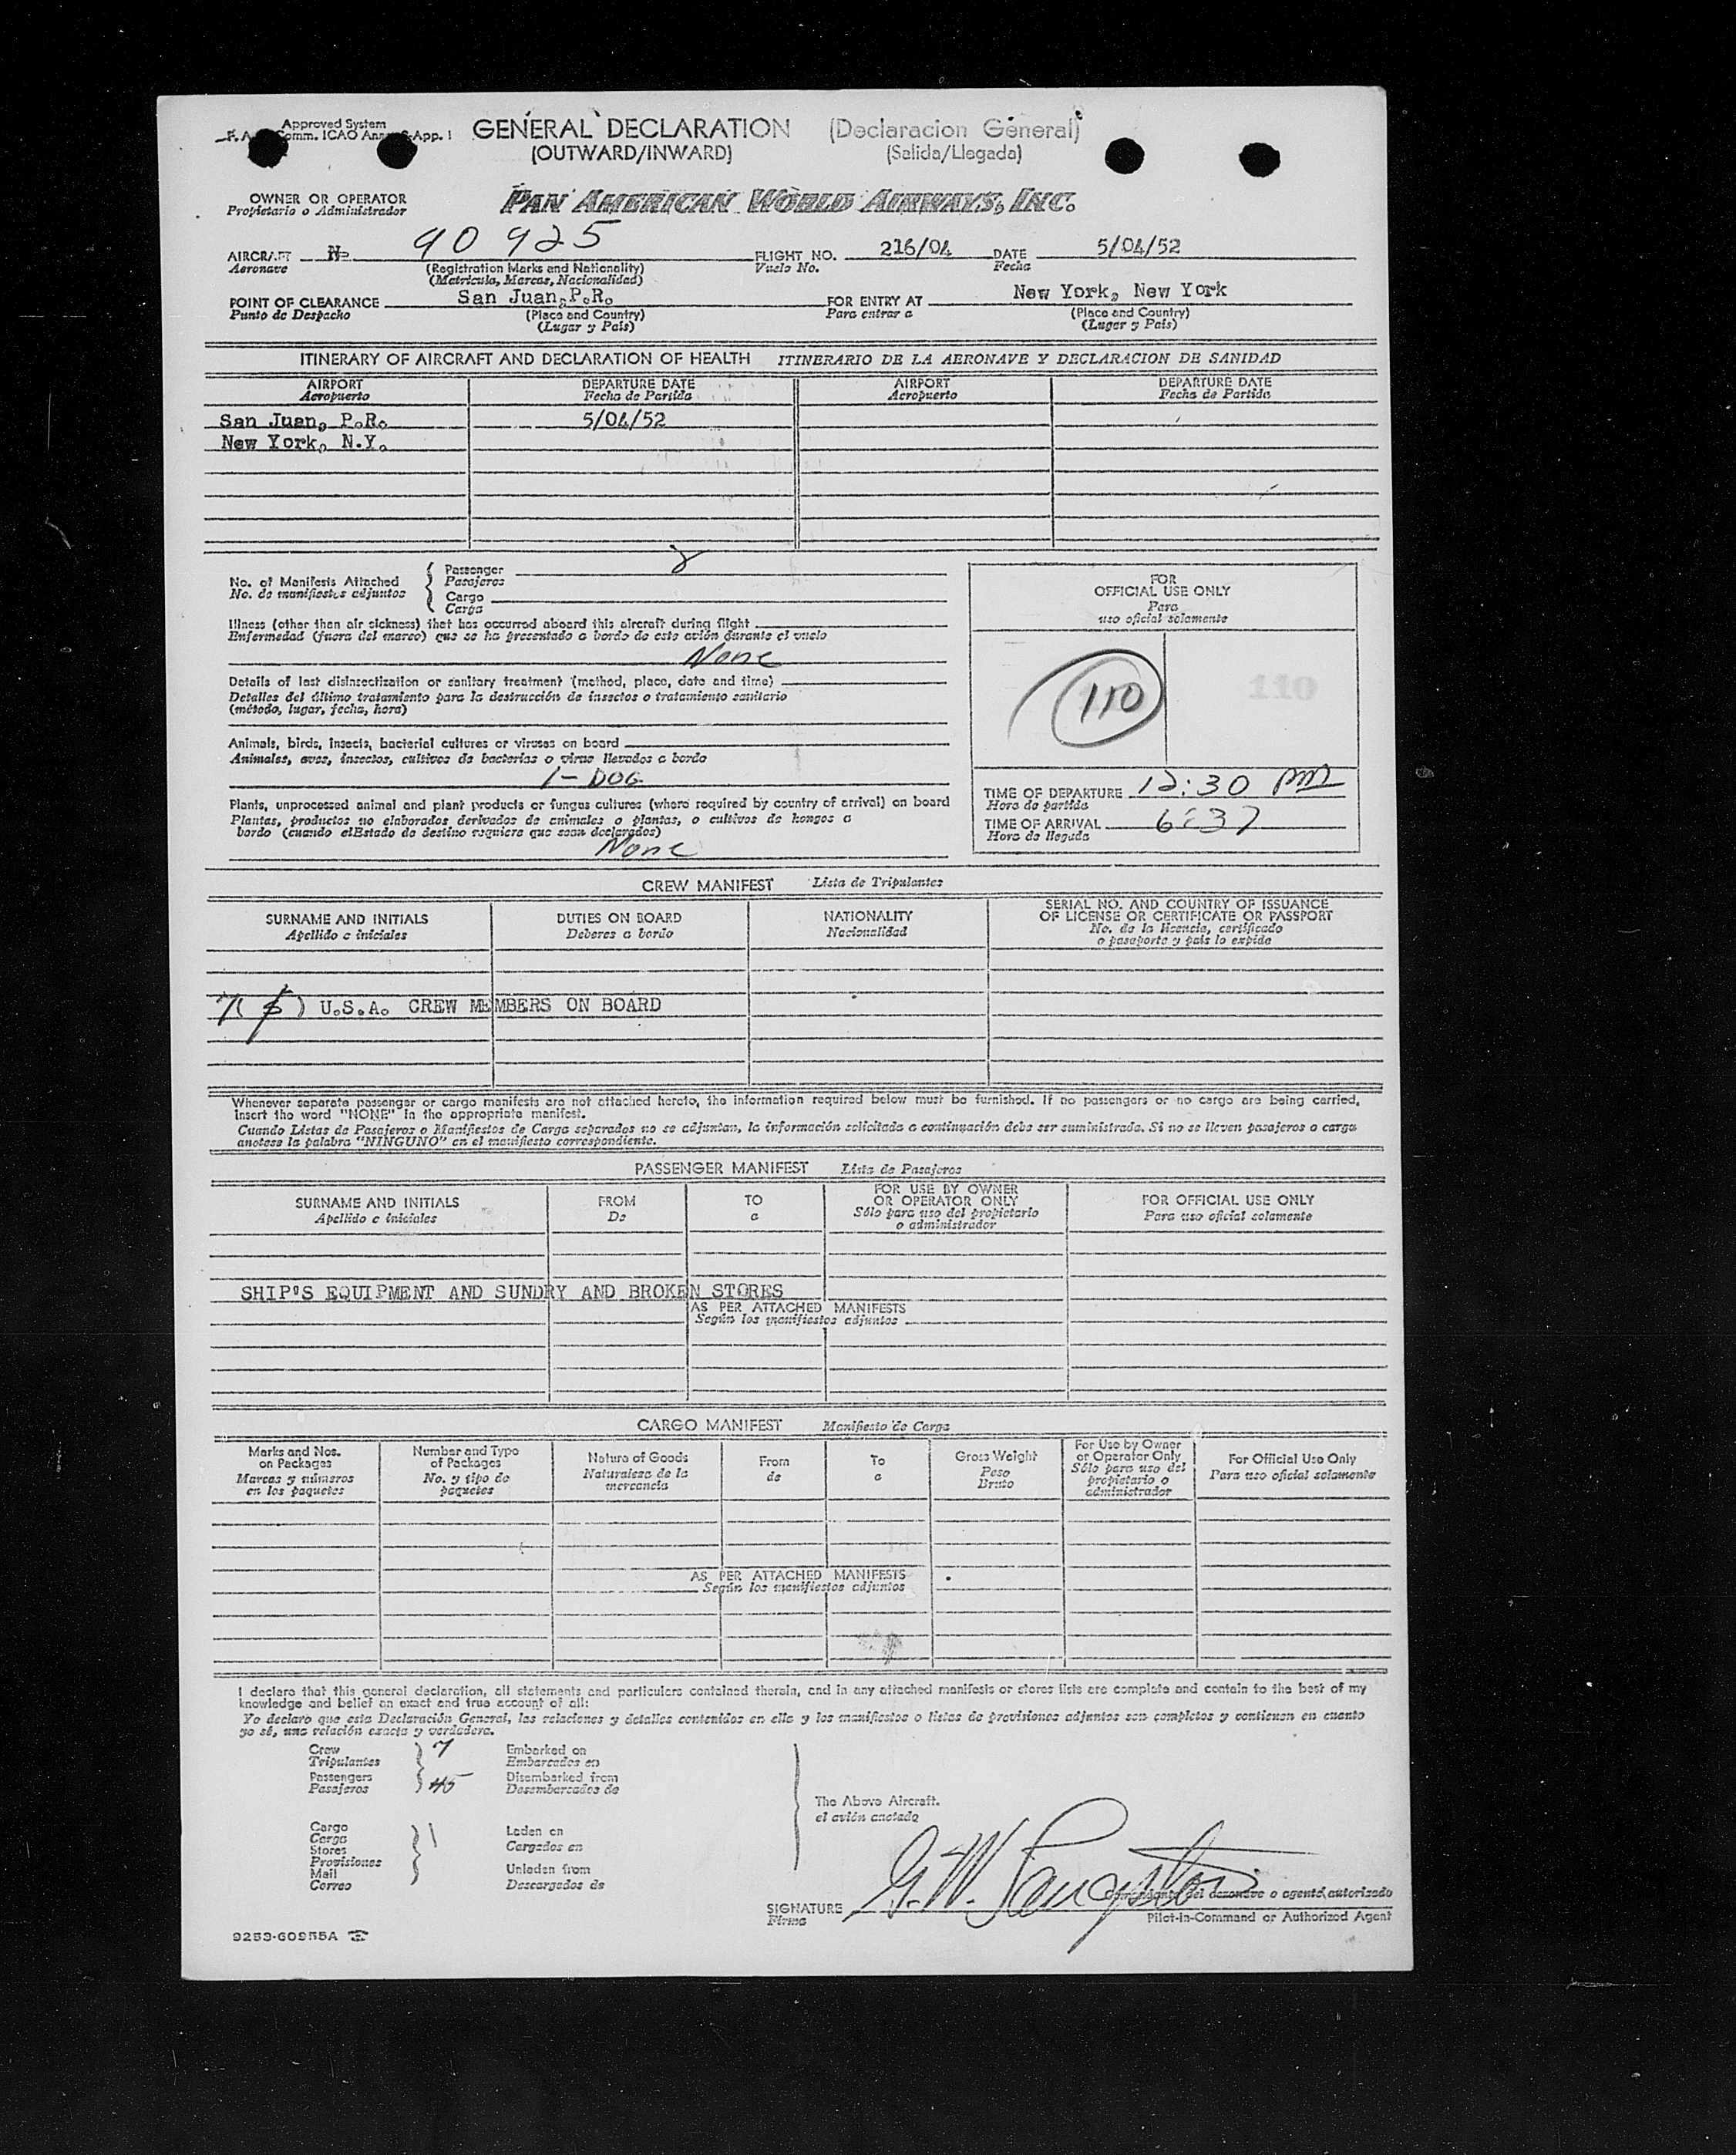 Approved System
Comm. ICAO App. 1
GENERAL DECLARATION (Declaracion General)
(OUTWARD/INWARD) (Salida/Llegada)
OWNER OR OPERATOR PAN AMERICAN WORLD AIRWAYS, INC.
Propietario o Administrador
AIRCRAFT N- 90925 FLIGHT NO. 216/04 DATE 5/04/52
Aeronave (Registration Marks and Nationality) Vuelo No. Fecha
(Matricula, Marcas, Nacionalidad)
POINT OF CLEARANCE San Juan, P.R. FOR ENTRY AT New York, New York
Punto de Despacho (Place and Country) Para entrar a (Place and Country)
(Lugar y País) (Lugar y País)
ITINERARY OF AIRCRAFT AND DECLARATION OF HEALTH ITINERARIO DE LA AERONAVE Y DECLARACION DE SANIDAD
AIRPORT DEPARTURE DATE AIRPORT DEPARTURE DATE
Aeropuerto Fecha de Partida Aeropuerto Fecha de Partida
San Juan, P.R. 5/04/52
New York, N.Y.
No. of Manifests Attached
No. de manifiestos adjuntos
Passenger
Pasajeros
Cargo
Carga
Illness (other than air sickness) that has occurred aboard this aircraft during flight
Enfermedad (fuera del mareo) que se ha presentado a bordo de este avión durante el vuelo
None
Details of last disinsectization or sanitary treatment (method, place, date and time)
Detalles del último tratamiento para la destrucción de insectos o tratamiento sanitario
(método, lugar, fecha, hora)
Animals, birds, insects, bacterial cultures or viruses on board
Animales, aves, insectos, cultivos de bacterias o virus llevados a bordo
1 - DOG
Plants, unprocessed animal and plant products or fungus cultures (where required by country of arrival) on board
Plantas, productos no elaborados derivados de animales o plantas, o cultivos de hongos a
bordo (cuando elEstado de destino requiere que sean declarados)
None
FOR
OFFICIAL USE ONLY
Para
uso oficial solamente
110 110
TIME OF DEPARTURE 12:30 PM
Hora de partida
TIME OF ARRIVAL 6:37
Hora de llegada
CREW MANIFEST Lista de Tripulantes
SURNAME AND INITIALS DUTIES ON BOARD NATIONALITY SERIAL NO. AND COUNTRY OF ISSUANCE
OF LICENSE OR CERTIFICATE OR PASSPORT
Apellido e iniciales Deberes a bordo Nacionalidad No. de la licencia, certificado
o pasaporte y país lo expide
7 ( ) U.S.A. CREW MEMBERS ON BOARD
Whenever separate passenger or cargo manifests are not attached hereto, the information required below must be furnished. If no passengers or no cargo are being carried,
insert the word "NONE" in the appropriate manifest.
Cuando Listas de Pasajeros o Manifiestos de Carga separados no se adjuntan, la información solicitada a continuación debe ser suministrada. Si no se lleven pasajeros o carga
anotese la palabra "NINGUNO" en el manifiesto correspondiente.
PASSENGER MANIFEST Lista de Pasajeros
SURNAME AND INITIALS FROM TO FOR USE BY OWNER
OR OPERATOR ONLY FOR OFFICIAL USE ONLY
Apellido e iniciales De a Sólo para uso del propietario
o administrador Para uso oficial solamente
SHIP'S EQUIPMENT AND SUNDRY AND BROKEN STORES
AS PER ATTACHED MANIFESTS
Según los manifiestos adjuntos
CARGO MANIFEST Manifiesto de Carga
Marks and Nos.
on Packages
Marcas y números
en los paquetes
Number and Type
of Packages
No. y tipo de
paquetes
Nature of Goods
Naturaleza de la
mercancía
From
de
To
a
Gross Weight
Peso
Bruto
For Use by Owner
or Operator Only
Sólo para uso del
propietario o
administrador
For Official Use Only
Para uso oficial solamente
AS PER ATTACHED MANIFESTS
Según los manifiestos adjuntos
I declare that this general declaration, all statements and particulars contained therein, and in any attached manifests or stores lists are complete and contain to the best of my
knowledge and belief an exact and true account of all:
Yo declaro que esta Declaración General, las relaciones y detalles contenidos en ella y los manifiestos o listas de provisiones adjuntos son completos y contienen en cuanto
yo sé, una relación exacta y verdadera.
Crew 7 Embarked on
Tripulantes Embarcados en
Passengers 45 Disembarked from
Pasajeros Desembarcados de
The Above Aircraft.
el avión anotado
Cargo
Carga
Stores
Provisiones
Mail
Correo
Laden on
Cargados en
Unladen from
Descargados de
SIGNATURE G.W. Sangster
Firma
Comandante del aeronave o agente autorizado
Pilot-in-Command or Authorized Agent
9253-60955A